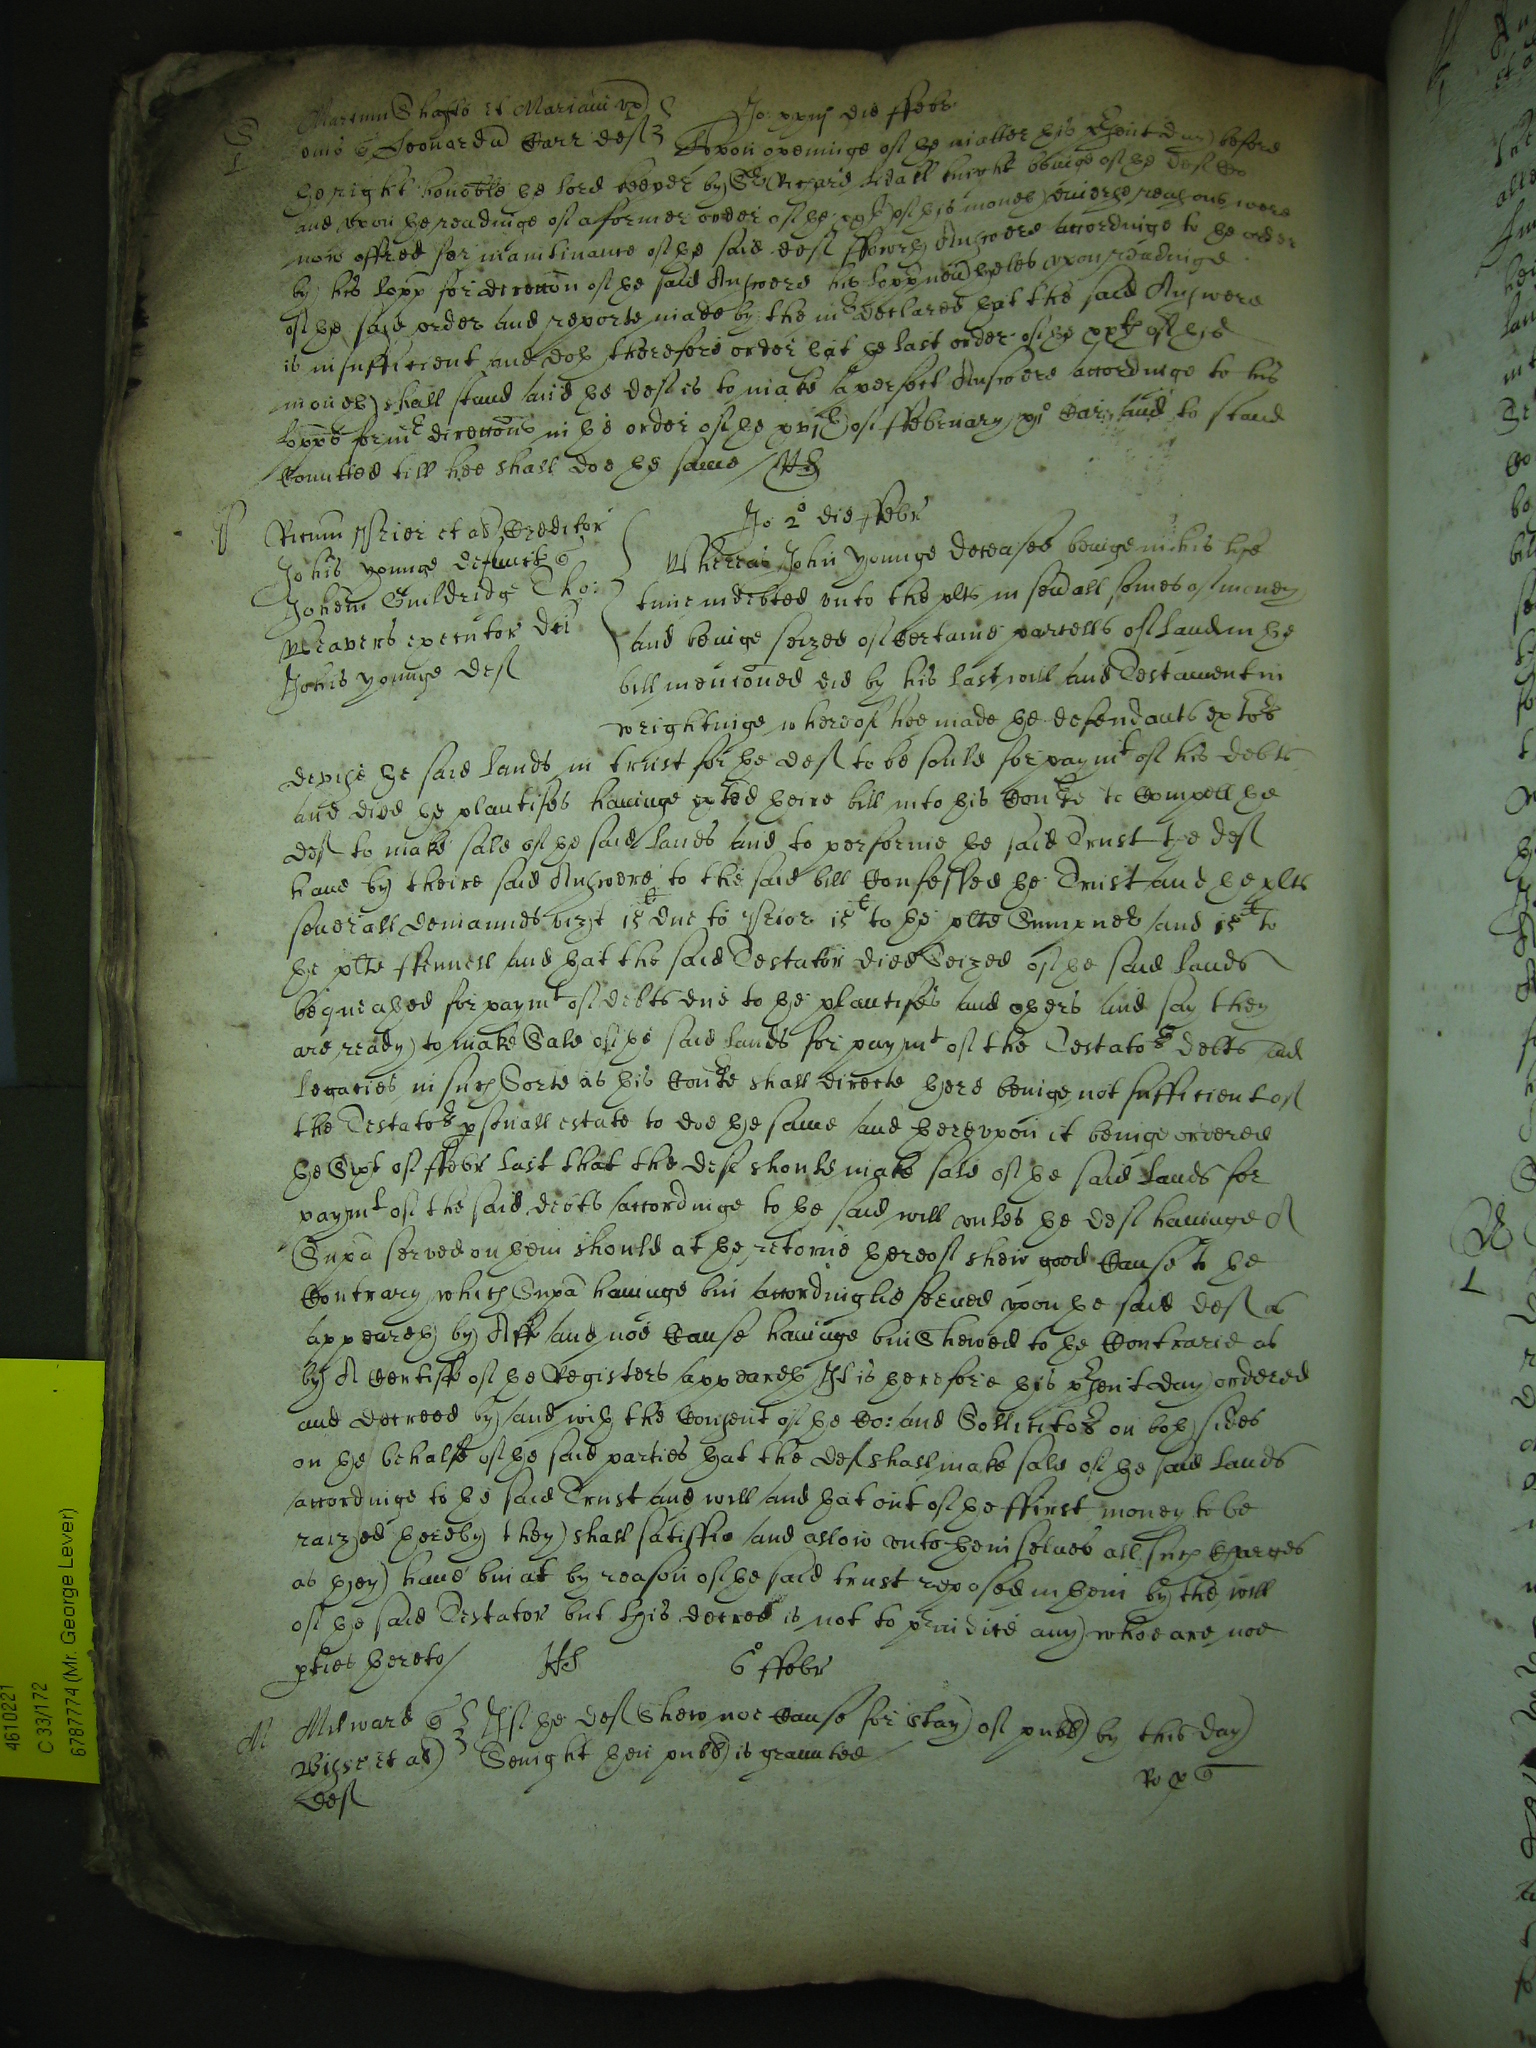 S
Martinu Shafto et Mariam vx
L
eius q Leonardu Carr def
Jo: xxiij die ffebr
Upon openinge of the matter this psent day before
the right honoble the lord keeper by Sr Richard Tidall knight beinge of the def Co
and vpon the readinge of a former order of the xxth of this moneth diuerse reasons were
now offred for maintinance of the said def ffowrth Answere accordinge to the order
by his lopp for direccon of the said Answere his lopp neutheles vpon readinge
of the said order and reporte made by the mr declared that the said Answere
is insufficient and doth therefore order that the last order of the xxth of this
moneth shall stand and the def is to make a perfect Answere accordinge to his
lopps formr direccons in the order of the xvjth of ffebruary xjo Car and to stand
Comitted till hee shall doe the same / HS
P
Ricum Prior et al Creditor
Johis younge defunct q
Johem Guildridge Tho:
Weavers executor dci
Johis younge def
Jo 2o die ffebr
Whereas John younge deceased beinge in his life
time indebted vnto the plts in seuall somes of money
and beinge seized of Certaine parcells of land in the
bill menconed did by his last will and Testament in
wrightinge whereof hee made the defendants extors
devise the said lands in trust for the def to be sould for paymt of his debts
and died the plantifes hauinge exhted theire bill into this Courte to Compell the
def to make sale of the said lands and to performe the said Trust the def
haue by theire said Answere to the said bill Confessed the Trust and the plts
seuerall demannds vizt is due to Prior is to the plte Sumpner and is to
the plte ffennell and that the said Testator died Seized of the said lands
bequeathed for paymt of debts due to the plantifes and others and say they
are ready to make Sale of the said lands for paymt of the Testators debts and
legacies in such Sorte as this Courte shall directe there beinge not sufficient of
the Testators psonall estate to doe the same and therevpon it beinge ordered
the Sixt of ffebr last that the def should make sale of the said lands for
paymt of the said debts accordinge to the said will vnles the def hauinge A
Supa served on them should at the retorne thereof shew good Cause to the
Contrary which Supa hauinge bin accordinglie serued vpon the said def as
appeareth by Aff and noe Cause hauinge bin Shewed to the Contrarie as
by A Certiffe of the Registers appeareth It is therefore this psent day ordered
and decreed by and with the Consent of the Co: and Sollicitors on both sides
on the behalfe of the said parties that the def shall make sale of the said lands
accordinge to the said Trust and will and that out of the ffirst money to be
raized thereby they shall satisffie and allow vnto themselues all such Charges
as they haue bin at by reason of the said trust reposed in them by the will
of the said Testator but this decree is not to preiudice any whoe are noe
pties thereto / HS
6o ffebr
M
Milward q
et al
def
If the def Shew noe Cause for stay of publ by this day
Senight then publ is graunted